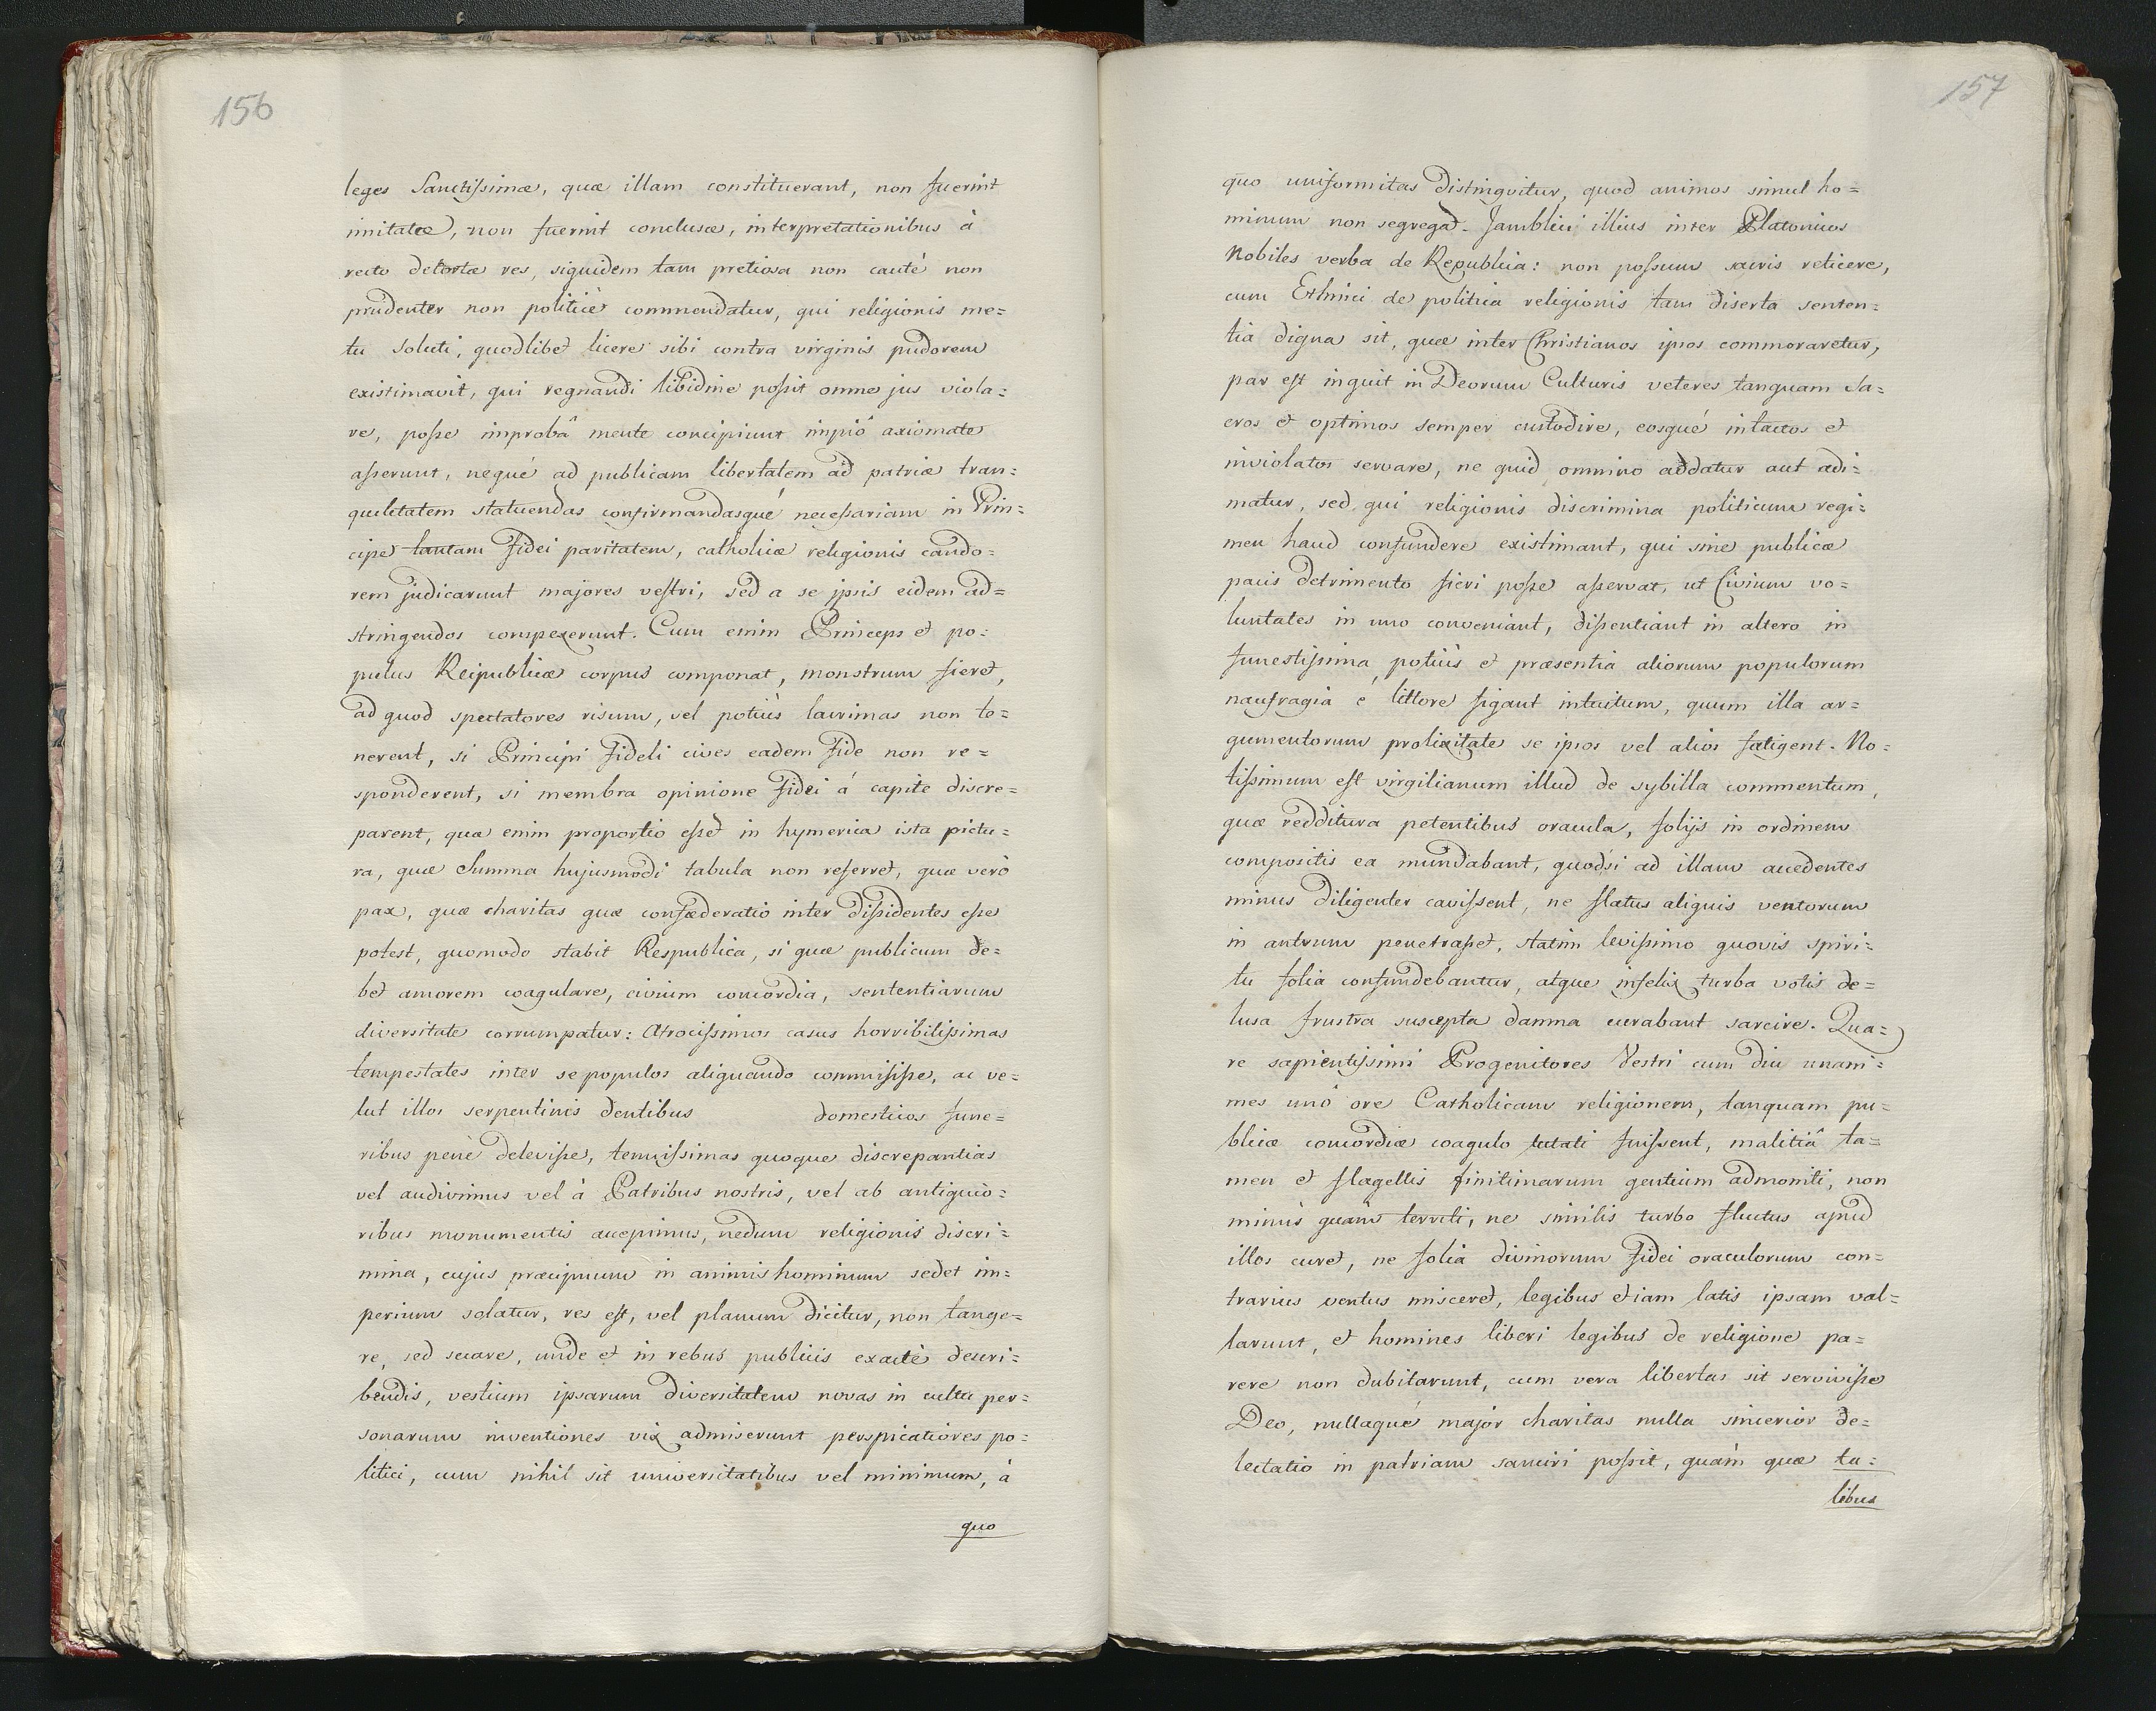 156
leges Sanctissimæ, quæ illam constituerant, non fuerint
imitatæ, non fuerint conclusæ, interpretationibus à
recto detortæ res, siquidem tam pretiosa non cauté non
prudenter non politicè commendatur, qui religionis me=
tu soluti, quodlibet licere sibi contra virginis pudorem
existimavit, qui regnandi libidine possit omne jus viola=
re, posse improbâ mente concipiunt impiô axiomate
asserunt, nequé ad publicam libertatem ad patriæ tran=
quiletatem statuendas confirmandasqué necessariam in Prin=
cipe tantam fidei paritatem, catholicæ religionis cando=
rem judicarunt majores vestri, sed a se ipsis eidem ad=
stringendos compexerunt. Cum enim Princeps et po=
pulus Reipublicæ corpus componat, monstrum fieret,
ad quod spectatores risum, vel potiùs lacrimas non te=
nerent, si Principi fideli cives eadem fide non re=
sponderent, si membra opinione fidei á capite discre=
parent, quæ enim proportio esset in hymerica ista pictu=
ra, quæ Summa hujusmodi tabula non referret, quæ verò
pax, quæ charitas quæ confæderatio inter dissidentes esse
potest, quomodo stabit Respublica, si quæ publicum de=
bet amorem coagulare, civium concordia, sententiarum
diversitate corrumpatur: Atrocissimos casus horribilissimas
tempestates inter se populos aliquando commisisse, ac ve=
lut illos serpentinis dentibus domesticos fune=
ribus penè delevisse, tenuissimas quoque discrepantias
vel audivimus vel à Patribus nostris, vel ab antiquio=
ribus monumentis accepimus, nedum religionis discri=
mina, cujus præcipuum in animis hominum sedet im=
perium solatur, res est, vel planum dicitur, non tange=
re, sed secare, unde et in rebus publicis exactè descri=
bendis, vestium ipsarum diversitatem novas in cultu per=
sonarum inventiones vix admiserunt perspicatiores po=
litici, cum nihil sit universitatibus vel minimum, à
quo
157
quo uniformitas distinguitur, quod animos simul ho=
minum non segregat. Jamblici illius inter Platonicos
Nobiles verba de Republica: non possum sacris reticere,
cum Ethnici de politia religionis tam diserta senten=
tia digna sit, quæ inter Christianos ipsos commoraretur,
par est inquit in Deorum Culturis veteres tanquam Sa=
cros et optimos semper custodire, eosqué intactos et
inviolatos servare, ne quid omnino addatur aut adi=
matur, sed qui religionis discrimina politicum regi=
men haud confundere existimant, qui sine publicæ
pacis detrimento fieri posse asservat, ut Civium vo=
luntates in uno conveniant, dissentiant in altero in
funestissima, potiùs et præsentia aliorum populorum
naufragia é littore figant intuitum, quum illa ar=
gumentorum prolixitate se ipsos vel alios fatigent. No=
tissimum est virgilianum illud de sybilla commentum,
quæ redditura petentibus oracula, folijs in ordinem
compositis ea mundabant, quodsi ad illam accedentes
minus diligenter cavissent, ne flatus aliquis ventorum
in antrum penetrasset, statim levissimo quovis spiri=
tu folia confundebantur, atque infelix turba votis de=
lusa frustra suscepta damna curabant sarcire. Qua=
re sapientissimi Progenitores Vestri cum diu unani=
mes unô ore Catholicam religionem, tanquam pu=
blicæ concordiæ coagulo tutati fuissent, malitiâ ta=
men et flagellis finitimarum gentium admoniti, non
minùs quàm territi, ne similis turbo fluctus apud
illos curet, ne folia divinorum fidei oraculorum con=
trarius ventus misceret, legibus etiam latis ipsam val=
larunt, et homines liberi legibus de religione pa=
rere non dubitarunt, cum vera libertas sit servivisse
Deo, nullaqué major charitas nulla sincerior de=
lectatio in patriam sanciri possit, quàm quæ ta=
libus